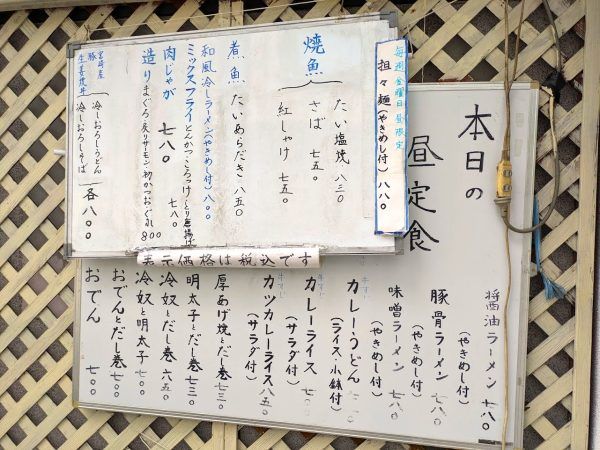 本日の
昼定食
毎週金曜日昼限定
担々麺(やきめし付)八八〇
焼魚
たい塩焼 八三〇
さば 七五〇
紅しゃけ 七五〇
煮魚 たいあらだき 八五〇
和風冷しラーメン(やきめし付)八〇〇
ミックスフライ とんかつ・ころっけ・とり唐揚げ 七八〇
肉じゃが 七八〇
造り まぐろ 炙りサーモン 初かつお 800
宮崎産
豚生姜焼丼
冷しおろしうどん
冷しおろしそば
各八〇〇
表示価格は税込です
醤油ラーメン 七八〇
(やきめし付)
豚骨ラーメン 七八〇
(やきめし付)
味噌ラーメン 七八〇
(やきめし付)
牛すじ
カレーうどん
(ライス・小鉢付)
牛すじ
カレーライス
(サラダ付)
牛すじ
カツカレーライス 八五〇
(サラダ付)
厚あげ焼とだし巻 七三〇
明太子とだし巻 七三〇
冷奴とだし巻 六五〇
冷奴と明太子 七〇〇
おでんとだし巻 七〇〇
おでん 七〇〇